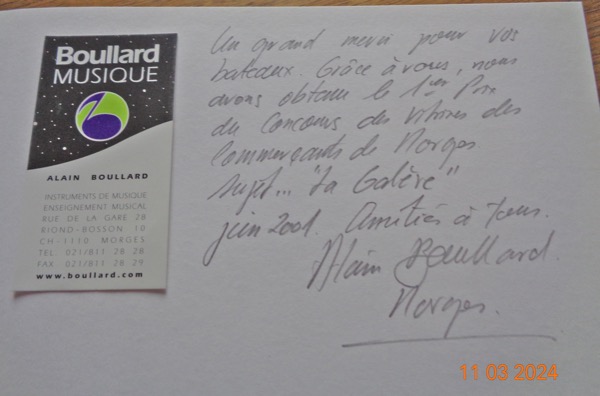 Boullard
MUSIQUE
ALAIN BOULLARD
INSTRUMENTS DE MUSIQUE
ENSEIGNEMENT MUSICAL
RUE DE LA GARE 28
RIOND-BOSSON 10
CH-1110 MORGES
TEL. 021/811 28 28
FAX 021/811 28 29
www.boullard.com
Un grand merci pour vos
bateaux. Grâce à vous, nous
avons obtenu le 1er Prix
du Concours des vitrines des
Commerçants de Morges
sujet... "La Galère"
juin 2001. Amitiés à tous.
Alain Boullard.
Morges.
11 03 2024